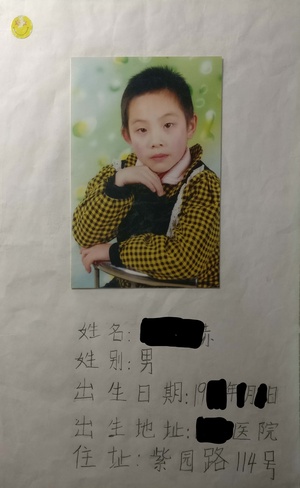 姓名:东
姓别:男
出生日期:19年月日
出生地址:医院
住址:紫园路114号